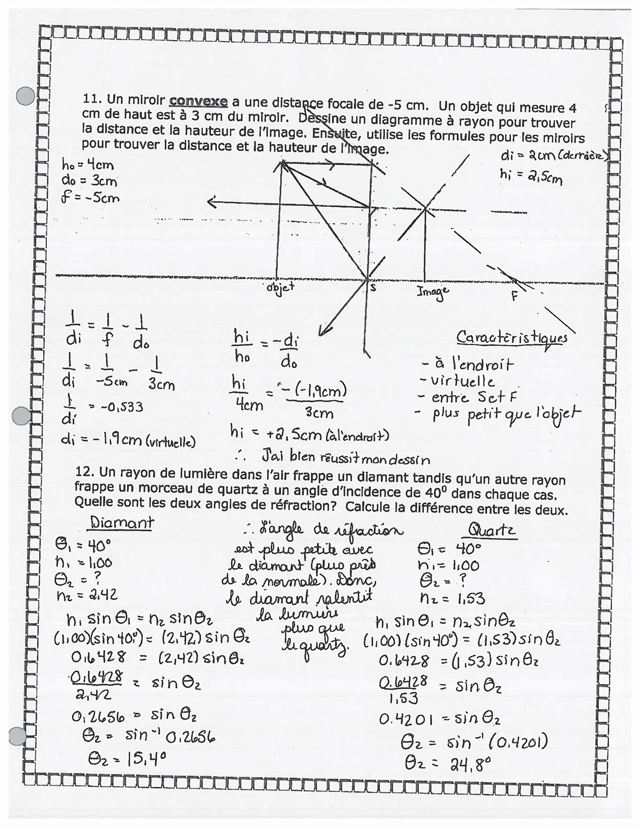 11. Un miroir convexe a une distance focale de -5 cm. Un objet qui mesure 4
cm de haut est à 3 cm du miroir. Dessine un diagramme à rayon pour trouver
la distance et la hauteur de l'image. Ensuite, utilise les formules pour les miroirs
pour trouver la distance et la hauteur de l'image.
ho = 4cm
do = 3cm
f = -5cm
di = 2cm (derrière)
hi = 2,5cm
objet S Image F
1/di = 1/f - 1/do
1/di = 1/-5cm - 1/3cm
1/di = -0,533
di = -1,9cm (virtuelle)
hi/ho = -di/do
hi/4cm = -(-1,9cm)/3cm
hi = +2,5cm (à l'endroit)
∴ J'ai bien réussit mon dessin
Caractéristiques
- à l'endroit
- virtuelle
- entre S et F
- plus petit que l'objet
12. Un rayon de lumière dans l'air frappe un diamant tandis qu'un autre rayon
frappe un morceau de quartz à un angle d'incidence de 40° dans chaque cas.
Quelle sont les deux angles de réfraction? Calcule la différence entre les deux.
Diamant
θ1 = 40°
n1 = 1,00
θ2 = ?
n2 = 2,42
n1 sin θ1 = n2 sin θ2
(1,00)(sin 40°) = (2,42) sin θ2
0,6428 = (2,42) sin θ2
0,6428/2,42 = sin θ2
0,2656 = sin θ2
θ2 = sin⁻¹ 0,2656
θ2 = 15,4°
∴ L'angle de réfraction
est plus petite avec
le diamant (plus près
de la normale). Donc,
le diamant ralentit
la lumière
plus que
le quartz.
Quartz
θ1 = 40°
n1 = 1,00
θ2 = ?
n2 = 1,53
n1 sin θ1 = n2 sin θ2
(1,00)(sin 40°) = (1,53) sin θ2
0.6428 = (1,53) sin θ2
0.6428/1,53 = sin θ2
0.4201 = sin θ2
θ2 = sin⁻¹ (0,4201)
θ2 = 24,8°